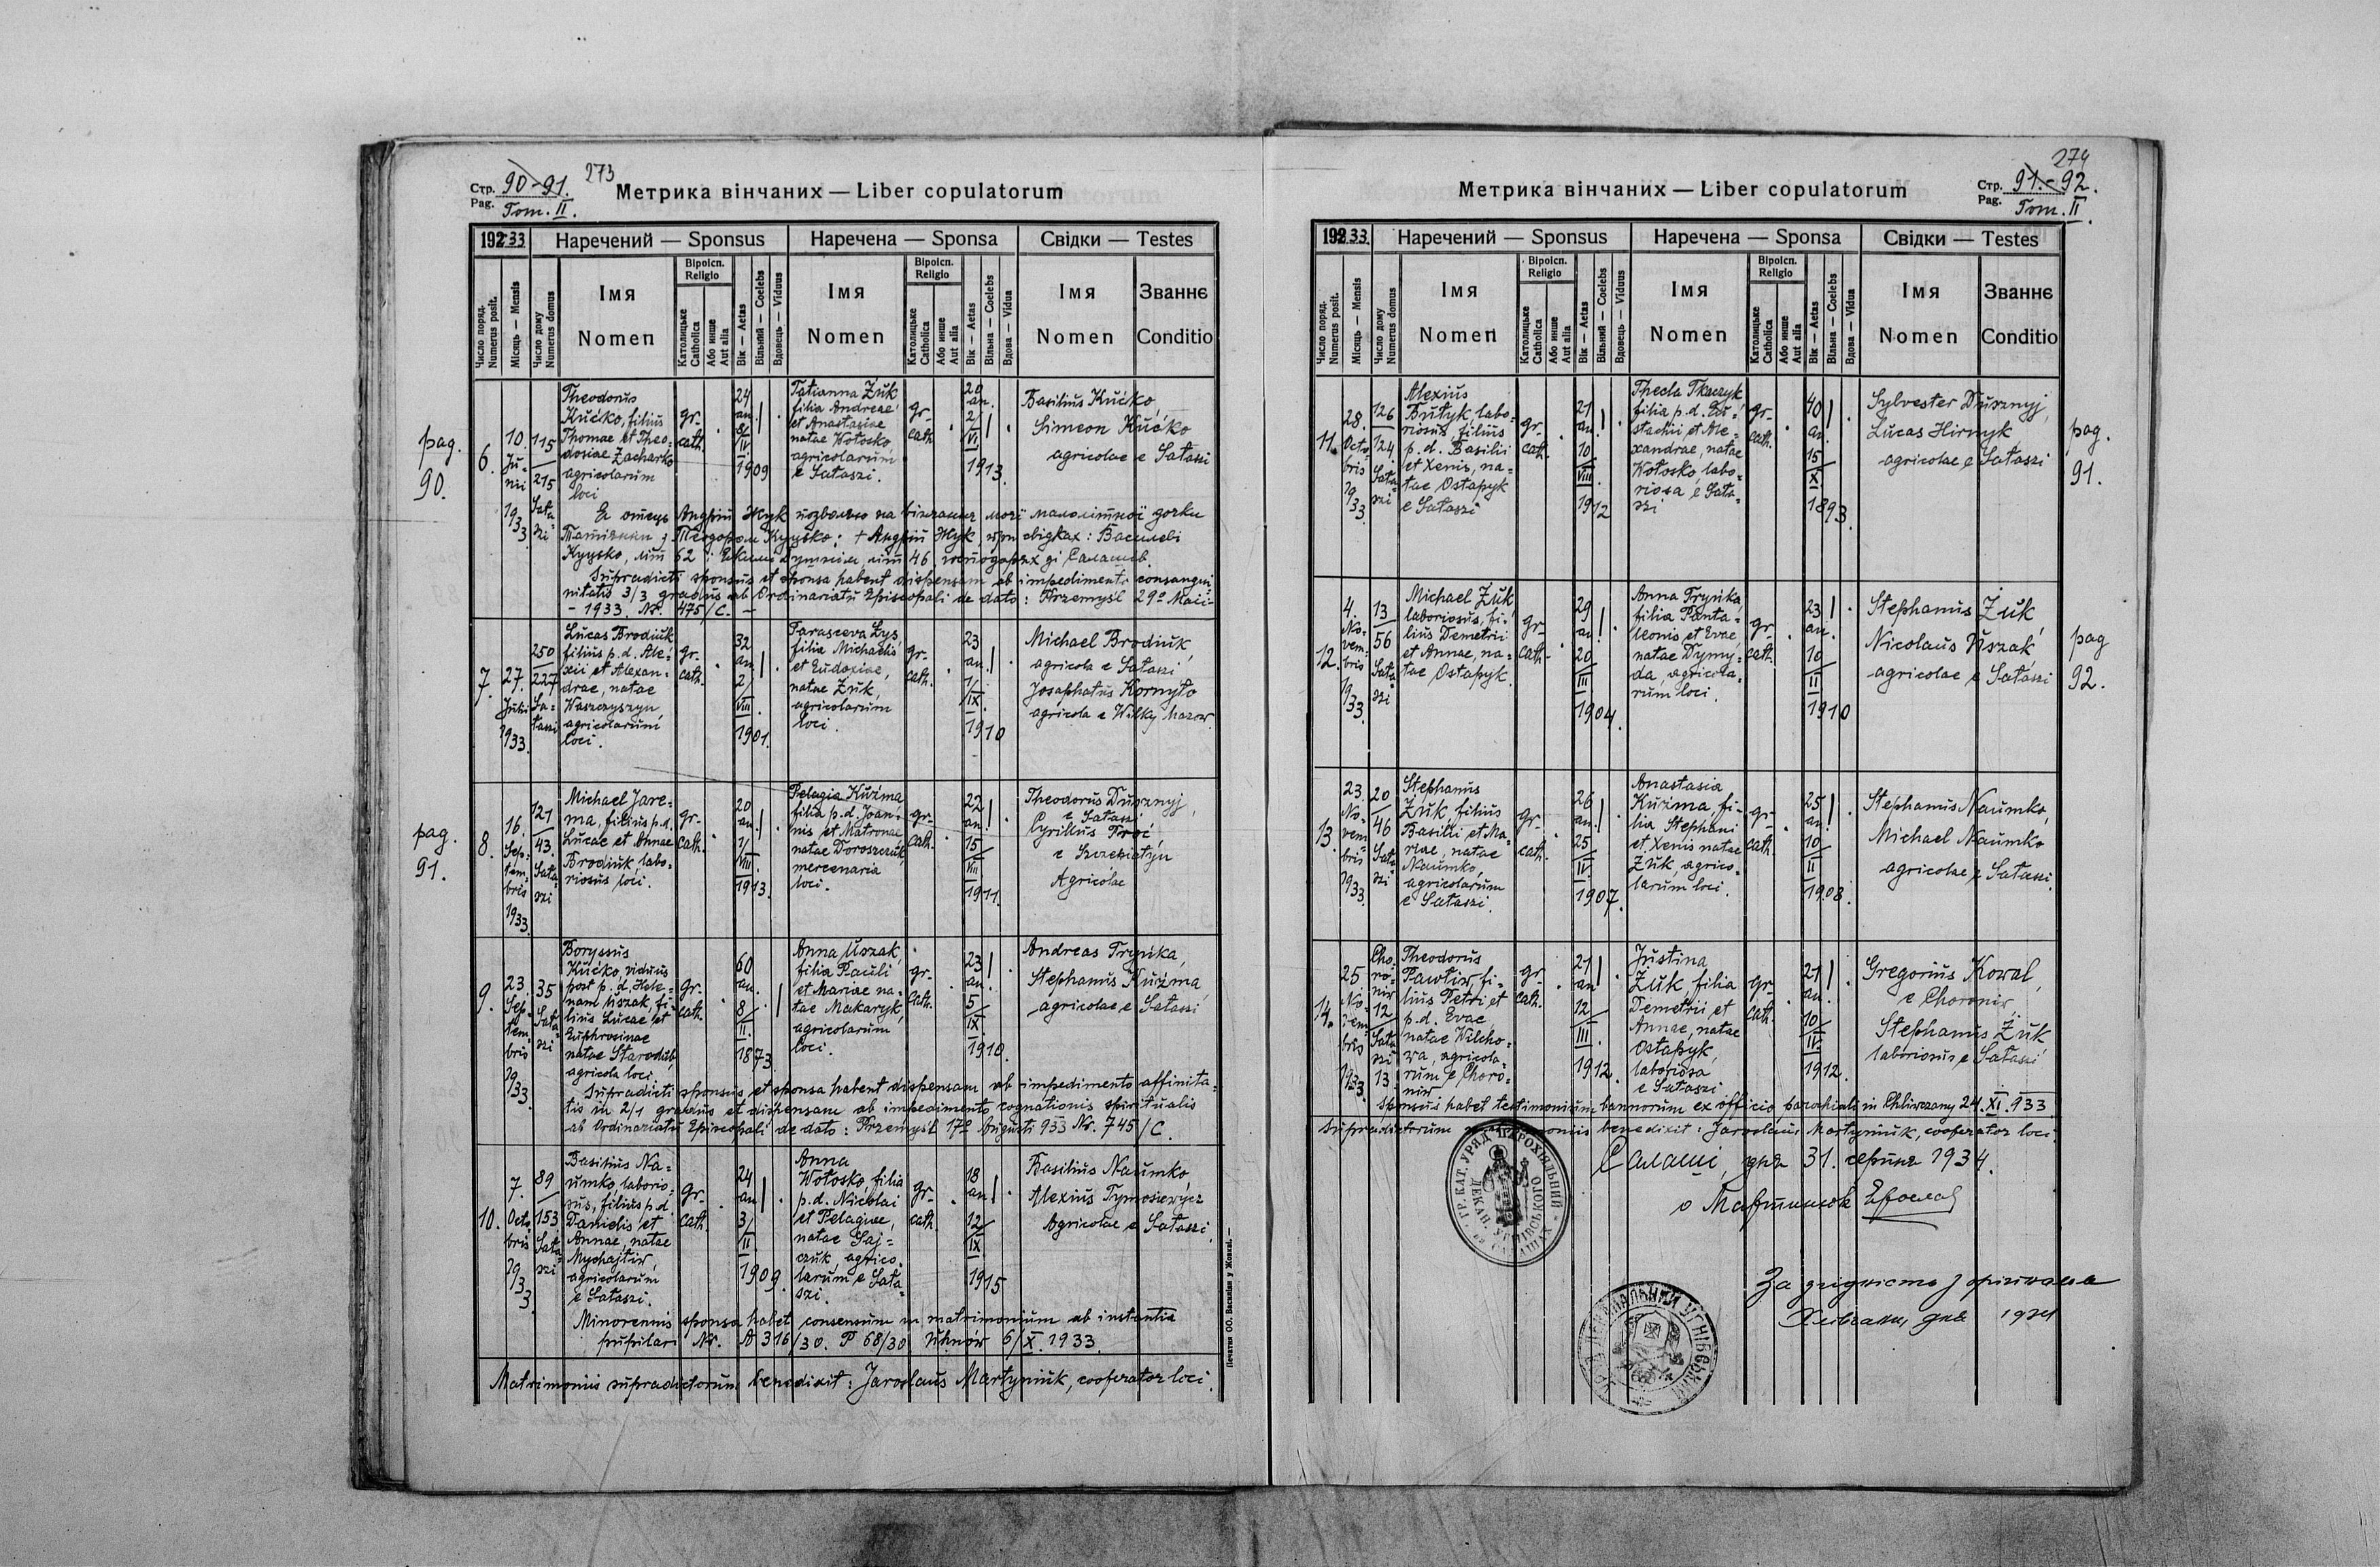 273
Стр. 90-91.
Pag. Tom. II.
Метрика вінчаних — Liber copulatorum
192 33
Наречений — Sponsus
Наречена — Sponsa
Свідки — Testes
Число поряд.
Numerus posit.
Місяць — Mensis
Число дому
Numerus domus
Імя
Nomen
Віроісп.
Religio
Католицьке
Catholica
Або инше
Aut alia
Вік — Aetas
Вільний — Coelebs
Вдовець — Viduus
Імя
Nomen
Віроісп.
Religio
Католицьке
Catholica
Або инше
Aut alia
Вік — Aetas
Вільна — Coelebs
Вдова — Vidua
Імя
Nomen
Званнє
Conditio
pag.
90.
6.
10
Ju-
nii
1933
115
215
Sała-
szi
Theodorus
Kućko, filius
Thomae et Theo-
dosiae Zacharko
agricolarum
loci
gr.
cath.
24
an.
8/
II.
1909
Tatianna Żuk
filia Andreae
et Anastasiae
natae Wołosko
agricolarum
e Sałaszi.
gr.
cath.
20
an.
2/
VI
1913.
Basilius Kućko,
Simeon Kućko
agricolae e Sałaszi
Я отець Андрій Жук позваляю на вінчаннє моєї малолітної дочки
Татіянни з Теодором Куцько: + Андрій Жук при свідках: Василеві
Куцько, літ 62
літ 46,
Supradicti sponsus et sponsa habent dispensam ab impedimento consangui-
nitatis 3/3 gradus ab Ordinariatu Episcopali de dato: Przemyśl 29º Maii
- 1933. Nr. 475/C. —
7.
27.
Julii
1933.
250
227
Sa-
łaszi
Lucas Brodiuk
filius p. d. Ale-
xii et Alexan-
drae, natae
Waszczyszyn
agricolarum
loci.
gr.
cath.
32
an.
2/
VIII.
1901.
Parasceva Łys
filia Michaelis
et Eudoxiae,
natae Żuk,
agricolarum
loci.
gr.
cath.
23
an.
1/
IX.
1910
Michael Brodiuk,
agricola e Sałaszi
Josaphatus Kornyło
agricola e Wilky Mazow.
pag.
91.
8.
16.
Sep-
tem-
bris
1933.
121
43.
Sała-
szi
Michael Jare-
ma, filius p. d.
Lucae et Annae
Brodiuk, labo-
riosus loci.
gr.
cath.
20
an.
1/
VIII.
1913.
Pelagia Kuźma
filia p. d. Joan-
nis et Matronae
natae Doroszczuk,
mercenaria
loci.
gr.
cath.
22
an.
15/
VIII
1911.
Theodorus Dusznyj,
e Sałaszi
Cyrillus Troć
e Szczepiatyn
Agricolae
9.
23.
Sep-
tem-
bris
1933.
35
Sała-
szi
Boryssus
Kućko, viduus
post p. d. Hele-
nam Uszak, fi-
lius Lucae et
Euphrosinae
natae Starodub,
agricola loci
gr.
cath.
60
an.
8/
II.
1873.
Anna Uszak,
filia Pauli
et Mariae na-
tae Makaryk,
agricolarum
loci.
gr.
cath.
23
an.
5/
IX.
1910.
Andreas Tryńka,
Stephanus Kuźma,
agricolae e Sałaszi
Supradicti sponsus et sponsa habent dispensam ab impedimento affinita-
tis in 2/1 gradus et dispensam ab impedimento cognationis spiritualis
ab Ordinariatu Episcopali de dato: Przemyśl 17º Augusti 933 Nr. 745/C.
10.
7.
Octo-
bris
1933.
89/
153
Sała-
szi
Basilius Na-
umko, laborio-
sus, filius p. d.
Danielis et
Annae, natae
Mychajłiw,
agricolarum
e Sałaszi.
gr.
cath.
24
an.
3/
II.
1909.
Anna
Wołosko, filia
p. d. Nicolai
et Pelagiae,
natae Saj-
czuk, agrico-
larum e Sała-
szi.
gr.
cath.
18
an.
12/
IX.
1915
Basilius Naumko,
Alexius Tymosewycz
Agricolae e Sałaszi.
Minorennis sponsa habet consensum in matrimonium ab instantia
pupilari Nr. A 316/30. P 68/30 Uhnów 6/X. 1933.
Matrimonia supradictorum benedixit: Jaroslaus Martyniuk, cooperator loci.
Печатня ОО. Василіян у Жовкві. —
274
Метрика вінчаних — Liber copulatorum
Стр. 91.-92.
Pag. Tom. II.
192 33.
Наречений — Sponsus
Наречена — Sponsa
Свідки — Testes
Число поряд.
Numerus posit.
Місяць — Mensis
Число дому
Numerus domus
Імя
Nomen
Віроісп.
Religio
Католицьке
Catholica
Або инше
Aut alia
Вік — Aetas
Вільний — Coelebs
Вдовець — Viduus
Імя
Nomen
Віроісп.
Religio
Католицьке
Catholica
Або инше
Aut alia
Вік — Aetas
Вільна — Coelebs
Вдова — Vidua
Імя
Nomen
Званнє
Conditio
11.
28.
Octo-
bris
1933.
126
124
Sała-
szi
Alexius
Butyk, labo-
riosus, filius
p. d. Basilii
et Xenis, na-
tae Ostapyk
e Sałaszi
gr.
cath.
21
an.
10/
VIII.
1912
Thecla Tkaczyk
filia p. d. Eu-
stachii et Ale-
xandrae, natae
Wołosko, labo-
riosa e Sała-
szi
gr.
cath.
40
an.
15/
X.
1893.
Sylvester Dusznyj,
Lucas Hirnyk
agricolae e Sałaszi
pag.
91.
12.
4.
No-
vem-
bris
1933.
13
56
Sała-
szi
Michael Żuk,
laboriosus, fi-
lius Demetrii
et Annae, na-
tae Ostapyk.
gr.
cath.
29
an.
20/
III
1904.
Anna Tryńka,
filia Panta-
leonis et Evae
natae Dymy-
da, agricola-
rum loci.
gr.
cath.
23
an.
10/
II
1910
Stephanus Żuk,
Nicolaus Uszak
agricolae e Sałaszi
pag
92.
13.
23.
No-
vem-
bris
1933.
20
46
Sała-
szi
Stephanus
Żuk, filius
Basilii et Ma-
riae, natae
Naumko,
agricolarum
e Sałaszi.
gr.
cath.
26
an.
25/
IV.
1907.
Anastasia
Kuźma, fi-
lia Stephani
et Xenis natae
Żuk, agrico-
larum loci.
gr.
cath.
25
an.
10/
II
1908.
Stephanus Naumko,
Michael Naumko
agricolae e Sałaszi.
14.
25
No-
vem-
bris
1933.
Cho-
ro-
niw
12
Sała-
szi
13.
Theodorus
Pawłiw, fi-
lius Petri et
p. d. Evae
natae Wilcho-
wa, agricola-
rum e Choro-
niw
gr.
cath.
21
an.
12/
III.
1912.
Justina
Żuk, filia
Demetrii et
Annae, natae
Ostapyk,
laboriosa
e Sałaszi
gr.
cath.
21
an.
10/
II.
1912.
Gregorius Kowal,
e Choroniw,
Stephanus Żuk
laboriosus e Sałaszi
Sponsus habet testimonium bannorum ex officio parochiali in Chliwczany 24. XI. 933
Supradictorum matrimoniis benedixit: Jaroslaus Martyniuk, cooperator loci.
Салаші, дня 31. серпня 1934.
о Мартинюк Ярослав
ГР. КАТ. УРЯД ПАРОХІЯЛЬНИЙ
ДЕКАН. УГНІВСЬКОГО
в САЛАШАХ
За згідність з оригіналом
Хлівчани, дня